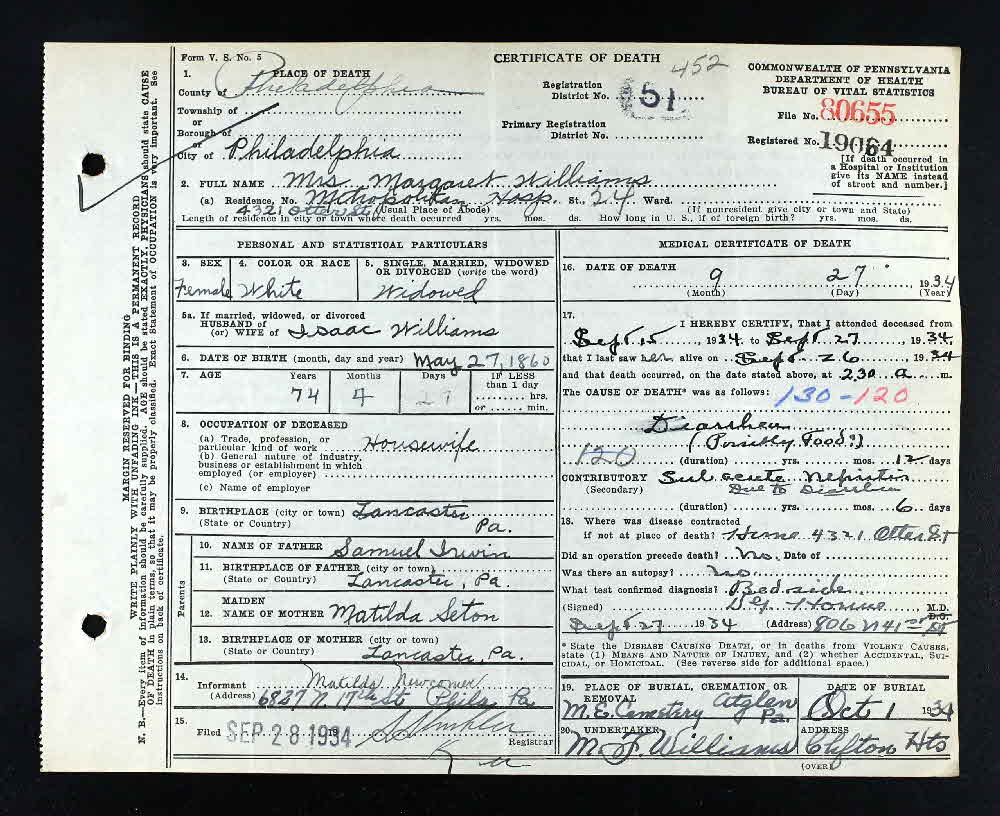 Form V. S. No. 5
CERTIFICATE OF DEATH
452
COMMONWEALTH OF PENNSYLVANIA
DEPARTMENT OF HEALTH
BUREAU OF VITAL STATISTICS
1. PLACE OF DEATH
County of Philadelphia
Township of
or
Borough of
or
City of Philadelphia
Registration
District No. 51
Primary Registration
District No.
File No. 80655
Registered No. 19064
[If death occurred in
a Hospital or Institution
give its NAME instead
of street and number.]
2. FULL NAME Mrs. Margaret Williams
(a) Residence, No. Metropolitan Hosp. St., 24 Ward.
4321 Otter St (Usual Place of Abode) (If nonresident give city or town and State)
Length of residence in city or town where death occurred yrs. mos. ds. How long in U. S., if of foreign birth? yrs. mos. ds.
PERSONAL AND STATISTICAL PARTICULARS
3. SEX 4. COLOR OR RACE 5. SINGLE, MARRIED, WIDOWED
OR DIVORCED (write the word)
Female White Widowed
5a. If married, widowed, or divorced
HUSBAND of
(or) WIFE of Isaac Williams
6. DATE OF BIRTH (month, day and year) May 27, 1860
7. AGE Years Months Days IF LESS
than 1 day
hrs.
or min.
74 4
8. OCCUPATION OF DECEASED
(a) Trade, profession, or
particular kind of work Housewife
(b) General nature of industry,
business or establishment in which
employed (or employer)
(c) Name of employer
9. BIRTHPLACE (city or town) Lancaster
(State or Country) Pa.
Parents
10. NAME OF FATHER Samuel Irwin
11. BIRTHPLACE OF FATHER (city or town)
(State or Country) Lancaster, Pa.
MAIDEN
12. NAME OF MOTHER Matilda Seton
13. BIRTHPLACE OF MOTHER (city or town)
(State or Country) Lancaster, Pa.
14.
Informant Matilda Newcomer
(Address) 6827 N 17th St Phila Pa
15.
Filed SEP 28 1934
Registrar
MEDICAL CERTIFICATE OF DEATH
16. DATE OF DEATH 9 27 1934
(Month) (Day) (Year)
17. I HEREBY CERTIFY, That I attended deceased from
Sept. 15, 1934 to Sept 27, 1934,
that I last saw her alive on Sept. 26, 1934
and that death occurred, on the date stated above, at 230 a m.
The CAUSE OF DEATH* was as follows: 130-120
Diarrhea
(Possibly Food?)
120 (duration) yrs. mos. 12 days
CONTRIBUTORY Sub acute Nephritis
(Secondary) Due to
(duration) yrs. mos. 6 days
18. Where was disease contracted
if not at place of death? Home 4321 Otter St
Did an operation precede death? No. Date of
Was there an autopsy? No.
What test confirmed diagnosis? Bedside
(Signed) M.D.
D.O.
Sept 27 1934 (Address) 806 N 41 St
* State the DISEASE CAUSING DEATH, or in deaths from VIOLENT CAUSES,
state (1) MEANS AND NATURE OF INJURY, and (2) whether ACCIDENTAL, SUI-
CIDAL, or HOMICIDAL. (See reverse side for additional space.)
19. PLACE OF BURIAL, CREMATION OR
REMOVAL
M.E. Cemetery Atglen
Pa.
DATE OF BURIAL
Oct 1 1934
20. UNDERTAKER
M. F. Williams
ADDRESS
Clifton Hts
(OVER)
MARGIN RESERVED FOR BINDING
WRITE PLAINLY WITH UNFADING INK—THIS IS A PERMANENT RECORD
N. B.—Every item of information should be carefully supplied. AGE should be stated EXACTLY. PHYSICIANS should state CAUSE
OF DEATH in plain terms, so that it may be properly classified. Exact Statement of OCCUPATION is very important. See
instructions on back of certificate.